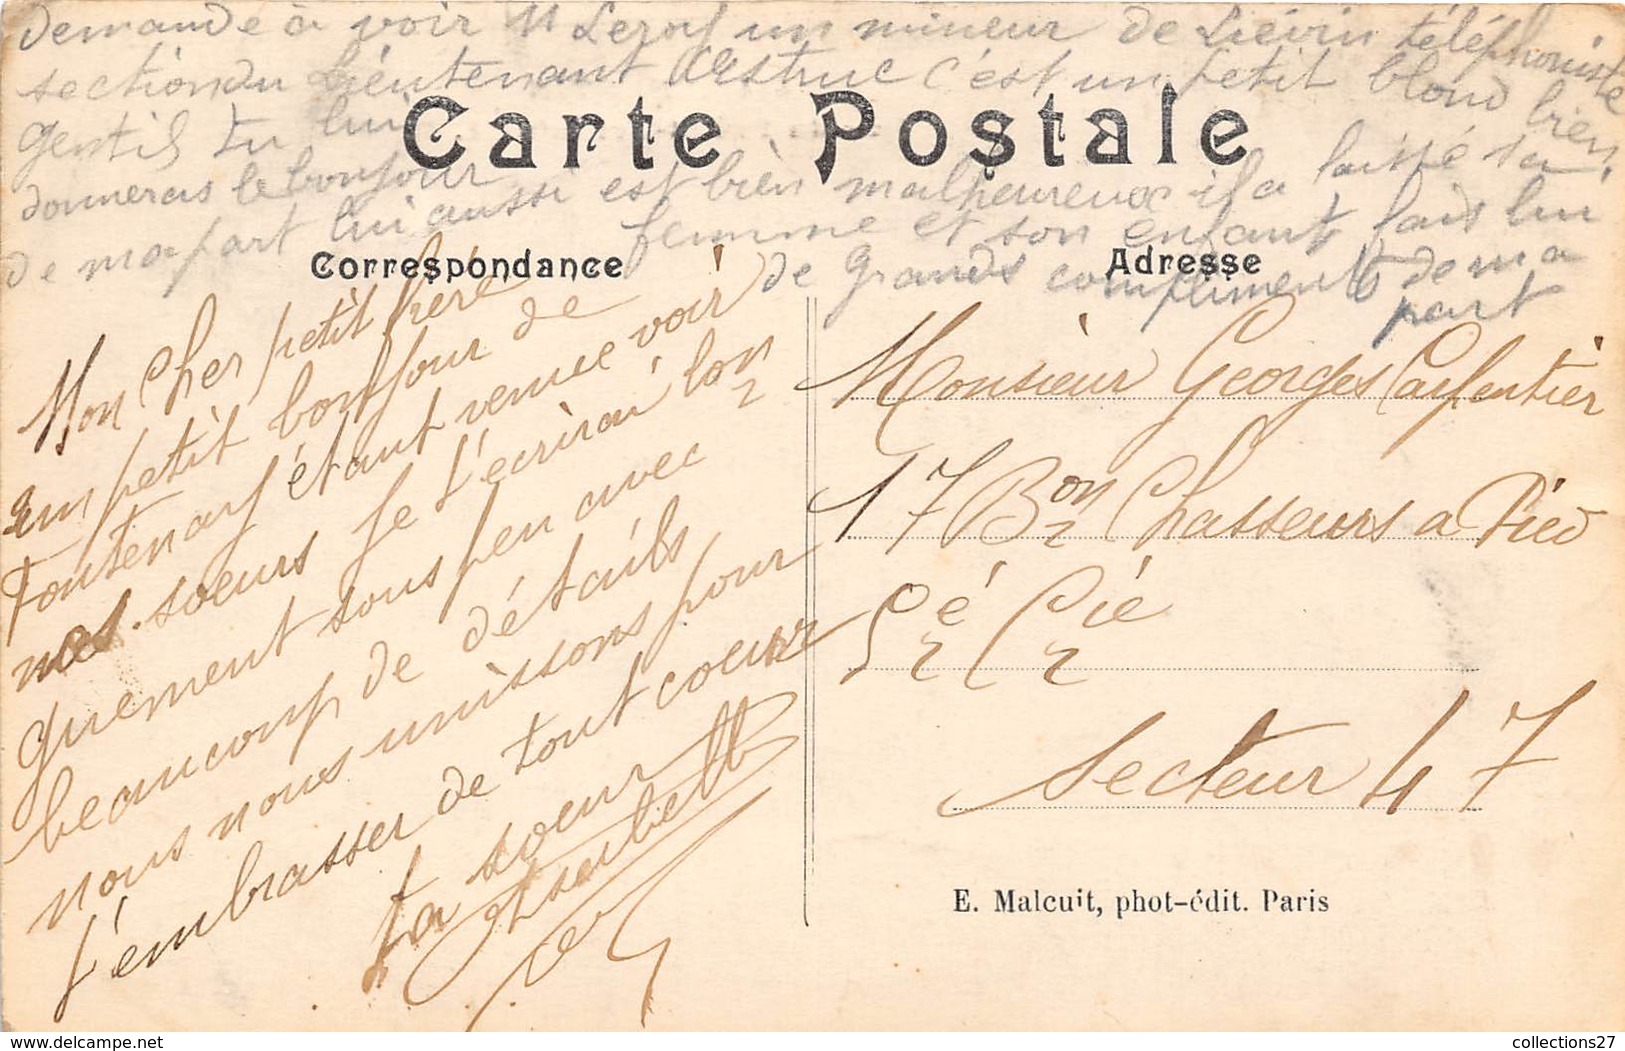 demande à voir M Leroy un mineur de Liévin téléphoniste
section du Lieutenant Astruc c'est un petit blond bien
gentil tu lui
donneras le bonjour
de ma part lui aussi est bien malheureux il a laissé sa
femme et son enfant fais lui
de grands compliments de ma
part
Carte Postale
Correspondance
Adresse
Mon cher petit frère
un petit bonjour de
Fontenay étant venue voir
nos soeurs je t'écrirai lon
guement sous peu avec
beaucoup de détails
nous nous unissons pour
t'embrasser de tout coeur
ta soeur
Monsieur Georges Carpentier
17 Bon Chasseurs a Pied
5é Cie
Secteur 47
E. Malcuit, phot-édit. Paris
www.delcampe.net
collections27